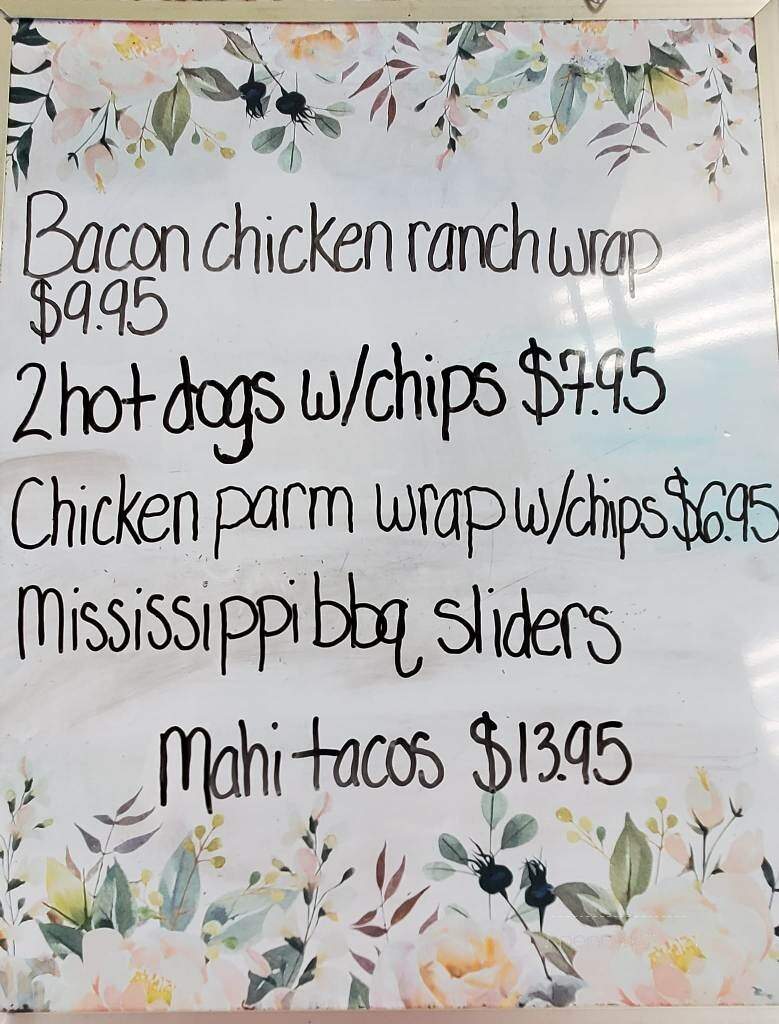 Bacon chicken ranch wrap
$9.95
2 hot dogs w/chips $7.95
Chicken parm wrap w/chips $6.95
Mississippi bbq sliders
Mahi tacos $13.95